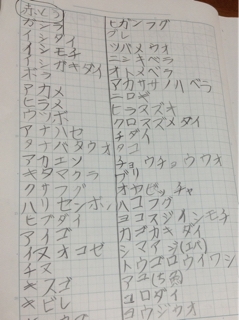 赤しょう
カシラ
イシダイ
イシモチ
イシガキダイ
ボラ
アカメ
ヒラメ
ウツボ
アナハゼ
タナバタウオ
アカエソ
キタマクラ
クサフグ
ハリセンボン
ヒブダイ
アイゴ
イヌオコゼ
チヌ
キスゴ
キビレ
ヒガンフグ
ブレ
ツバメウオ
ニシキベラ
オトメベラ
アカササノハベラ
ニロギ
ヒラスズキ
クロスズメダイ
チダイ
タコ
チョウチョウウオ
ブリ
オヤビッチャ
ハコフグ
ヨコスジイシモチ
カゴカキダイ
シマイシ(エバ)
トウゴロウイワシ
アユ(5魚)
コロダイ
ヨウジウオ